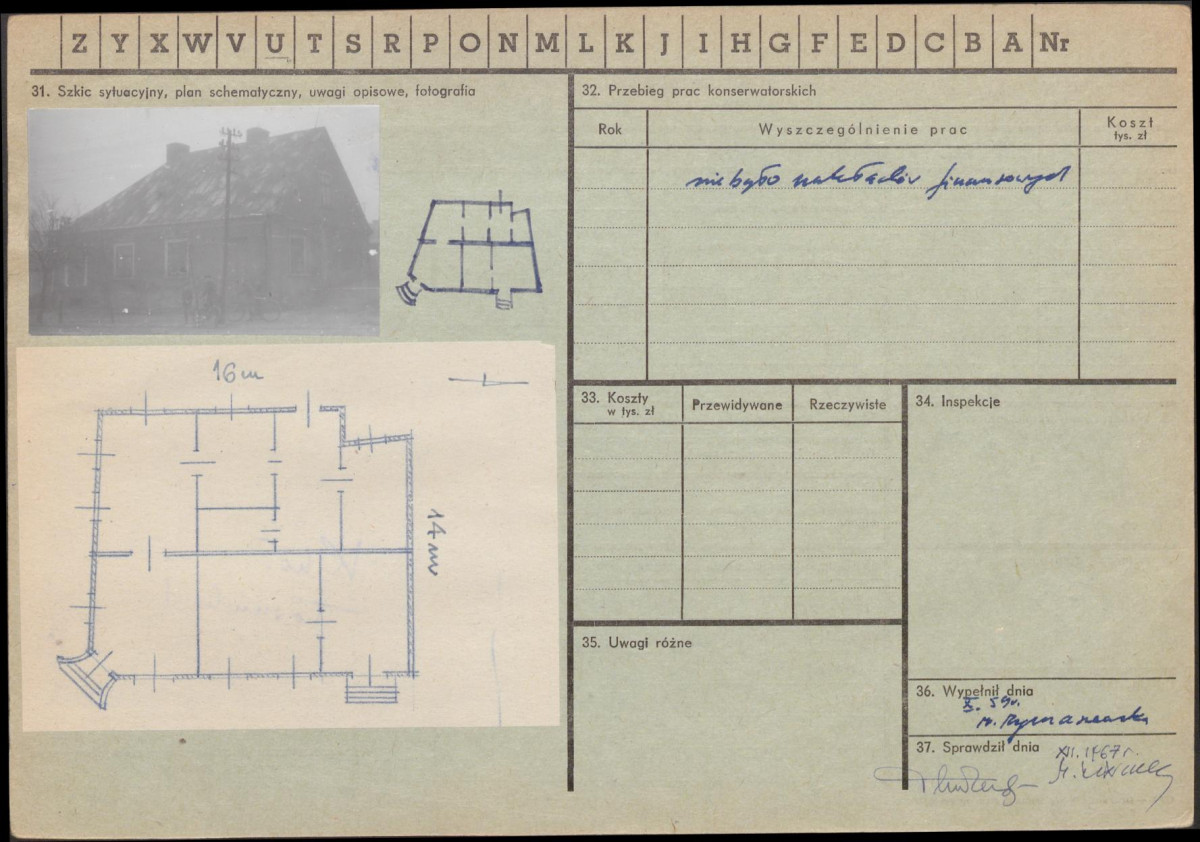 Z Y X W V U T S R P O N M L K J I H G F E D C B A Nr
31. Szkic sytuacyjny, plan schematyczny, uwagi opisowe, fotografia
16 m
14 m
32. Przebieg prac konserwatorskich
Rok Wyszczególnienie prac Koszt tys. zł
nie było nakładów finansowych
33. Koszty w tys. zł Przewidywane Rzeczywiste
34. Inspekcje
35. Uwagi różne
36. Wypełnił dnia
X. 59 r.
37. Sprawdził dnia
XII. 1967 r.